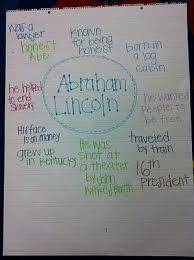 was a
lawyer
honest
Abe
known
for being
honest
born in
a log
cabin
Abraham
Lincoln
he helped
to end
slavery
he wanted
people to
be free
His face
is on money
grew up
in Kentucky
He was
shot at
a theater
by John
Wilkes Booth
traveled
by train
16th
President